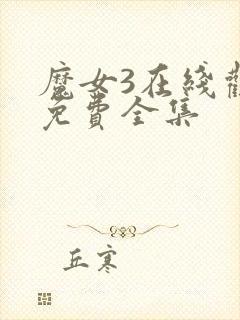 魔女3在线
免费全集
丘寒